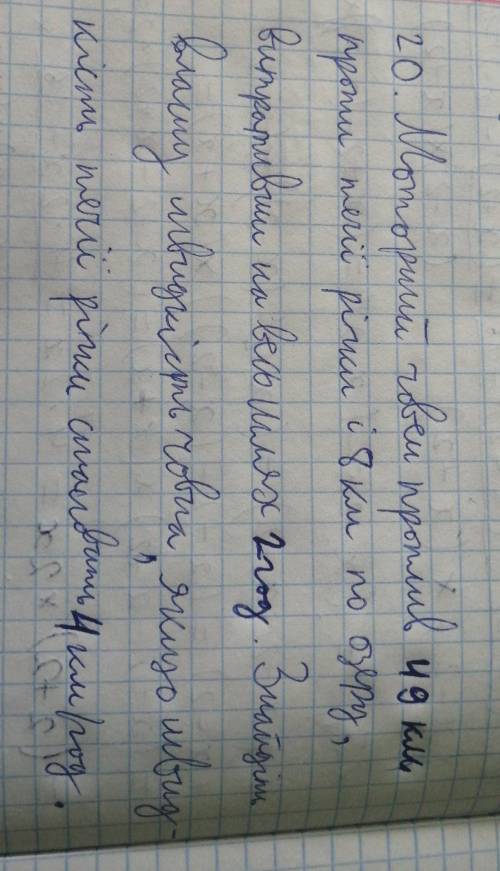 20. Моторний човен проплив 49 км
проти течії річки і 8 км по озеру,
витративши на весь шлях 2 год. Знайдіть
власну швидкість човна, якщо швид-
кість течії річки становить 4 км/год.